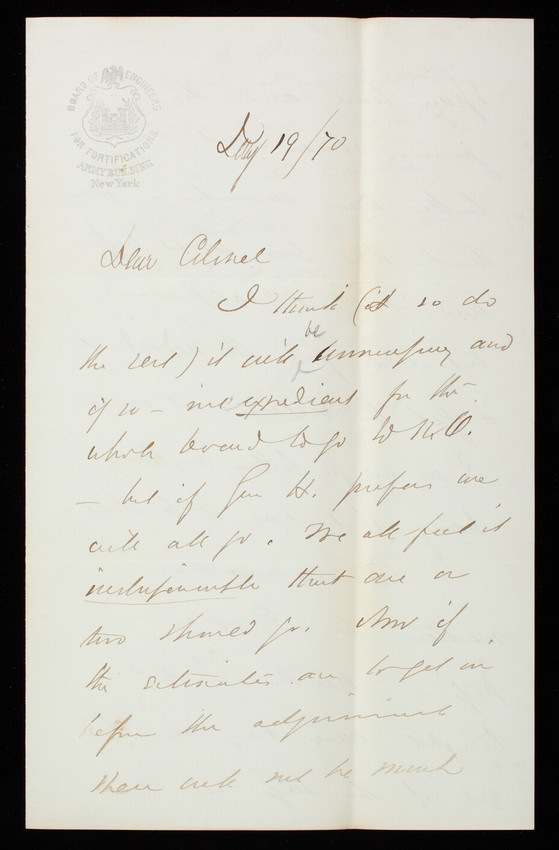 BOARD OF ENGINEERS
FOR FORTIFICATIONS
ARMY BUILDING
New York
19/70
Dear Colonel
I think (& so do
the rest) it will be unnecessary and
if so - inexpedient for the
whole board to go to N.O.
- but if Gen H. prefers we
will all go. We all feel it
indispensable that one or
two should go. Now if
the estimates are to get in
before the adjournment
there will not be much